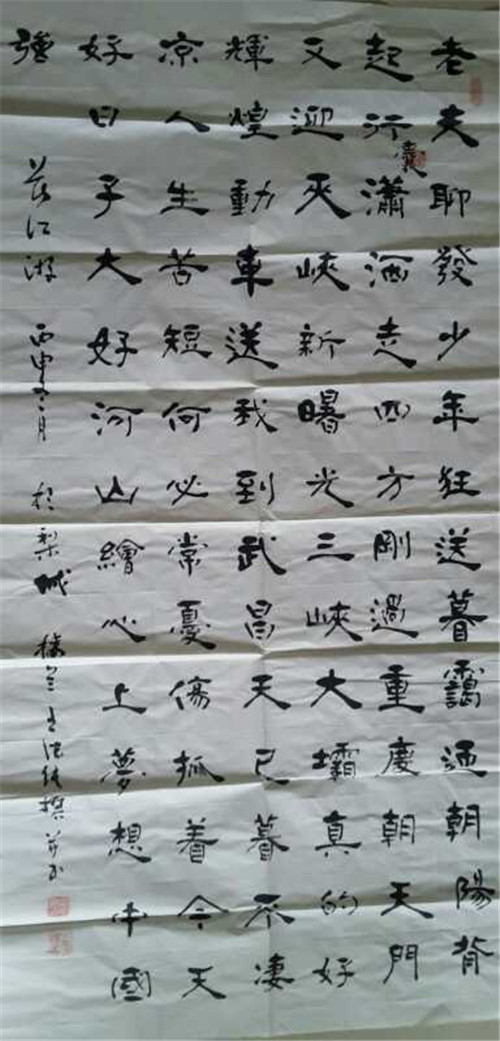 老夫聊發少年狂送暮靄迎朝陽背
起行囊瀟洒走四方剛過重慶朝天門
又迎夾峽新曙光三峽大壩真的好
輝煌動車送我到武昌天已暮不凄
凉人生苦短何必常憂傷孤着今天
好日子大好河山繪心上夢想中國
強 江游 丙申冬月 於梨城 撰并书